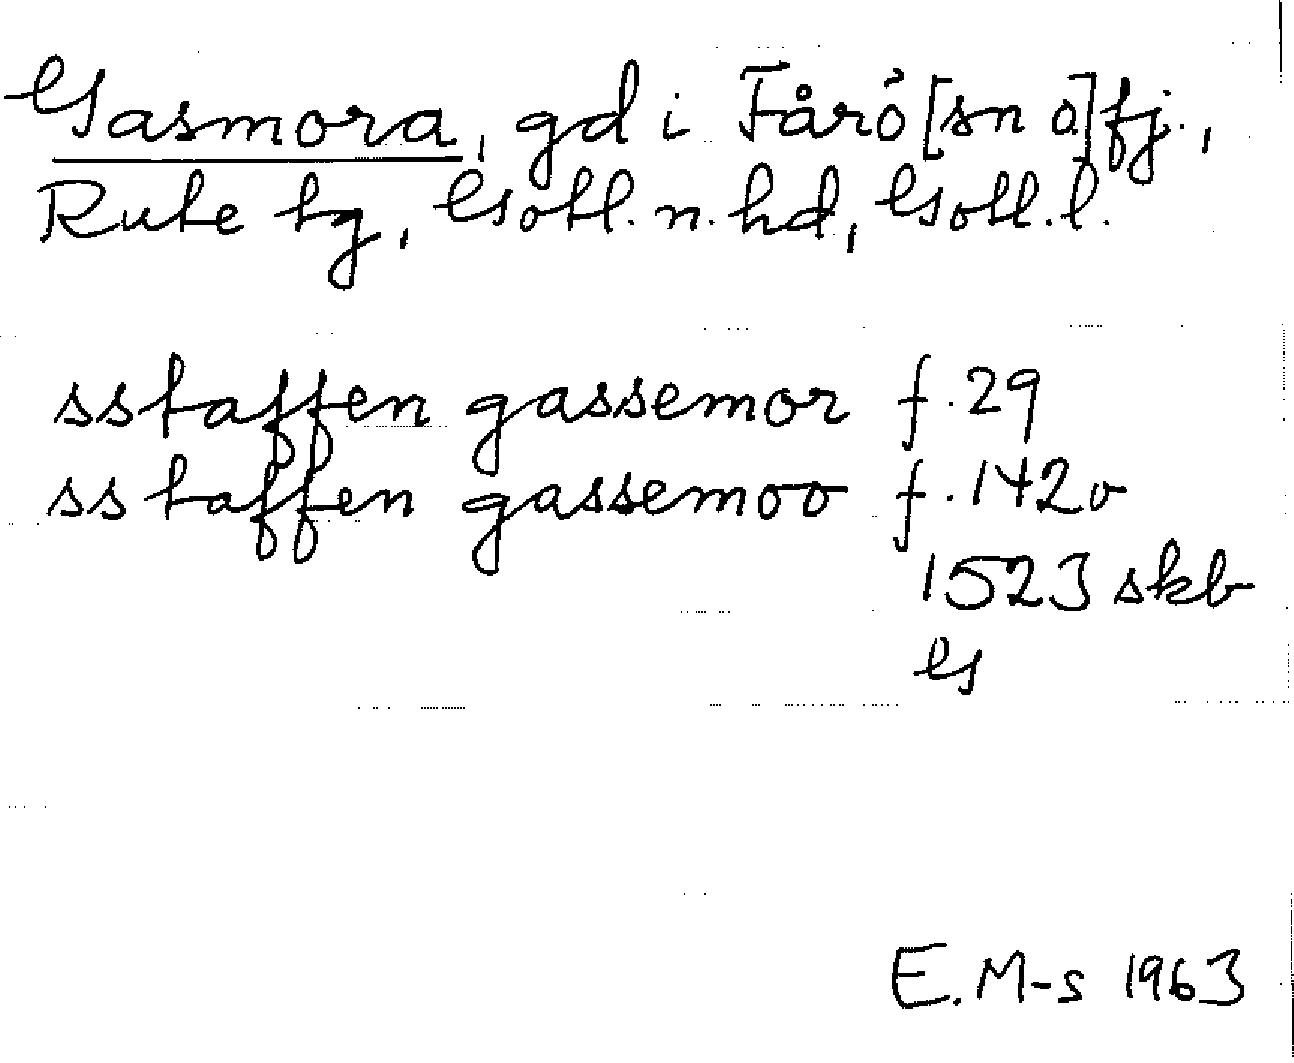 Gasmora, gd i Fårö [sn o] fj.,
Rute tg, Gotl. n. hd, Gotl. l.
sstaffen gassemor f. 29
sstaffen gassemoo f. 142v
1523 skb
G
E. M-s 1963